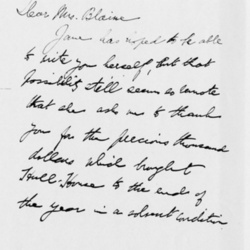 Dear Mrs. Blaine
Jane has hoped to be able
to write you herself, but that
possibility still seems so remote
that she asks me to thank
you for the precious thousand
dollars which brought
Hull-House to the end of
the year in a solvent condition